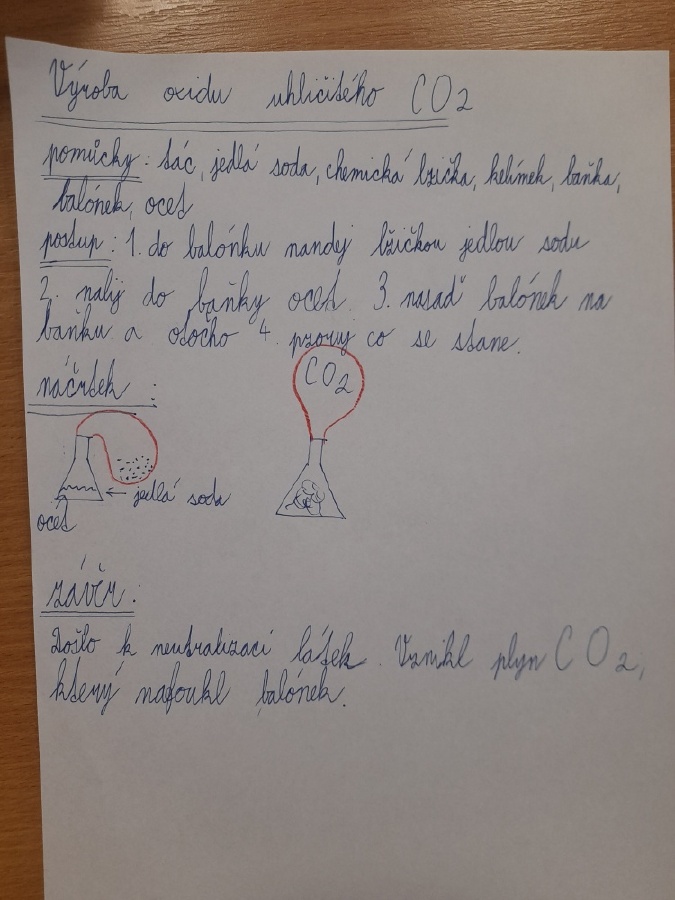 Výroba oxidu uhličitého CO2
pomůcky: tác, jedlá soda, chemická lžička, kelímek, baňka,
balónek, ocet
postup: 1. do balónku nandej lžičkou jedlou sodu
2. nalij do baňky ocet. 3. nasaď balónek na
baňku a otočho 4. pzoruj co se stane.
náčrtek:
CO2
jedlá soda
ocet
závěr:
Došlo k neutralizaci látek. Vznikl plyn CO2,
který nafoukl balónek.